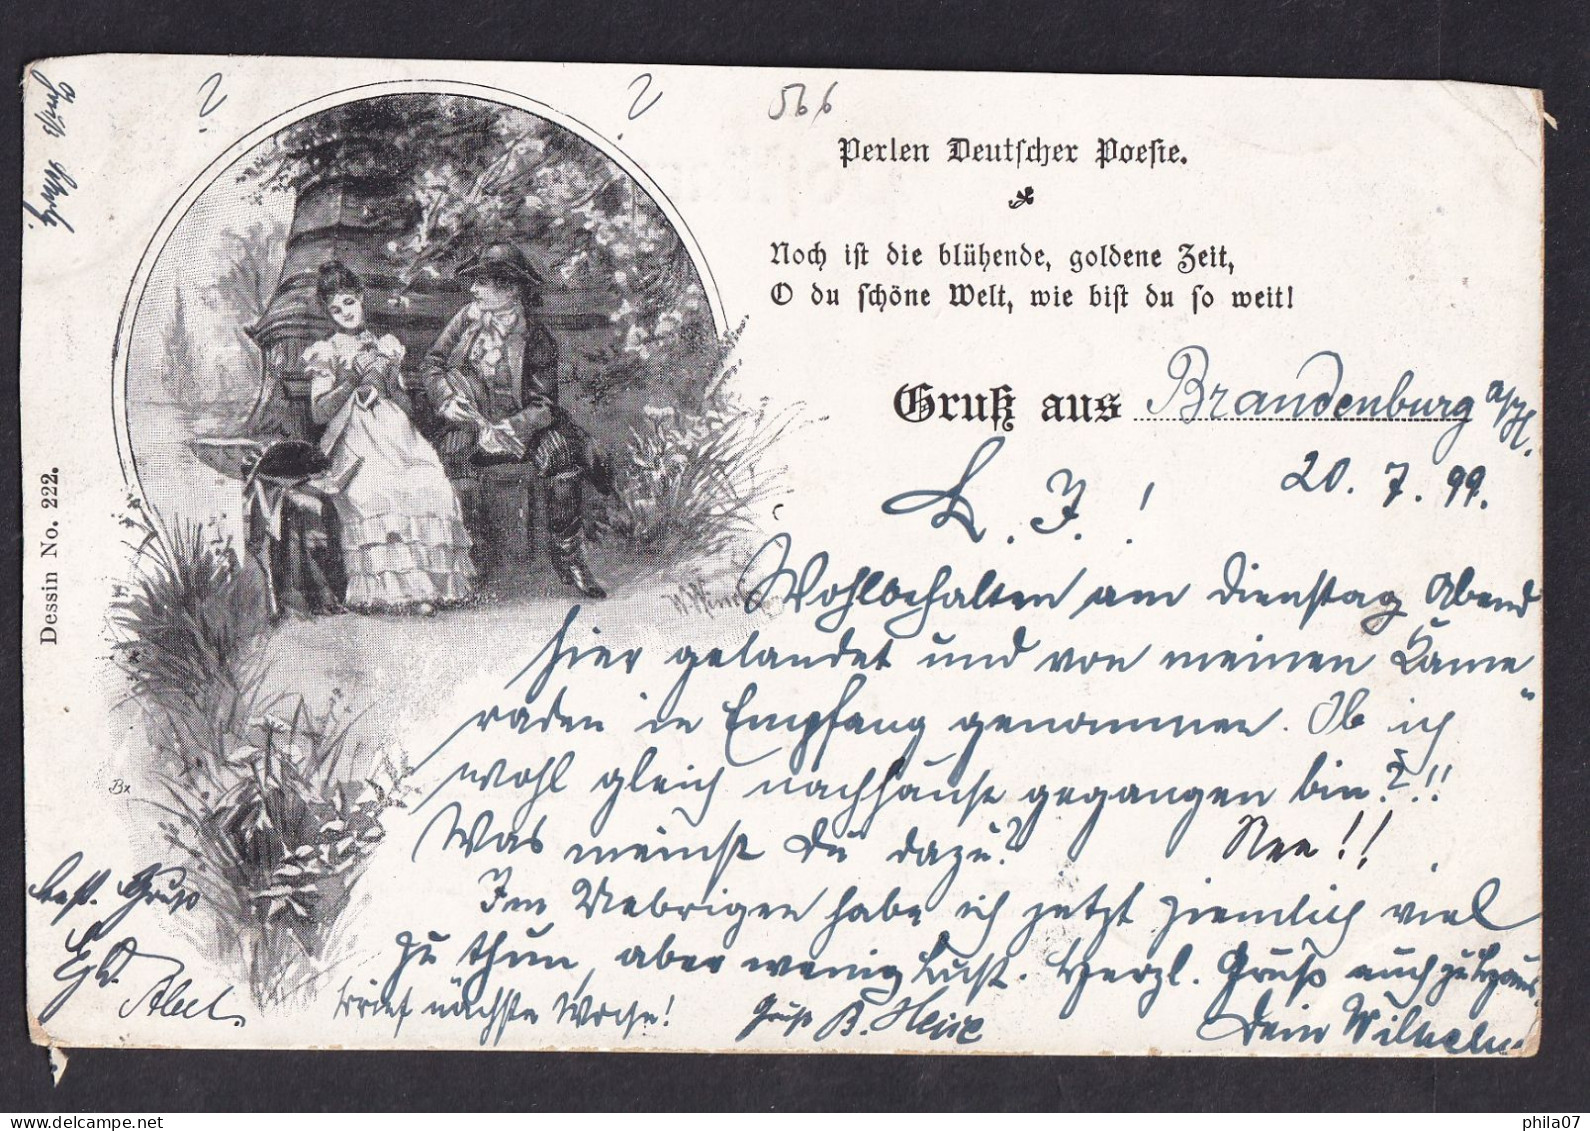 566
Perlen Deutscher Poesie.
Noch ist die blühende, goldene Zeit,
O du schöne Welt, wie bist du so weit!
Gruß aus Brandenburg a/H.
20. 7. 99.
L. J.!
Wohlbehalten am Dienstag Abend
hier gelandet und von meinen Kame-
raden in Empfang genommen. Ob ich
wohl gleich nachhause gegangen bin?!!
Was meinst Du dazu? Nee!!
Im Uebrigen habe ich jetzt ziemlich viel
zu thun, aber wenig Lust. Herzl. Gruß auch zu Haus.
Dein Wilhelm.
Brief nächste Woche!
Gruß B.
Best. Gruss
Gruß
Dessin No. 222.
Bx
phila07